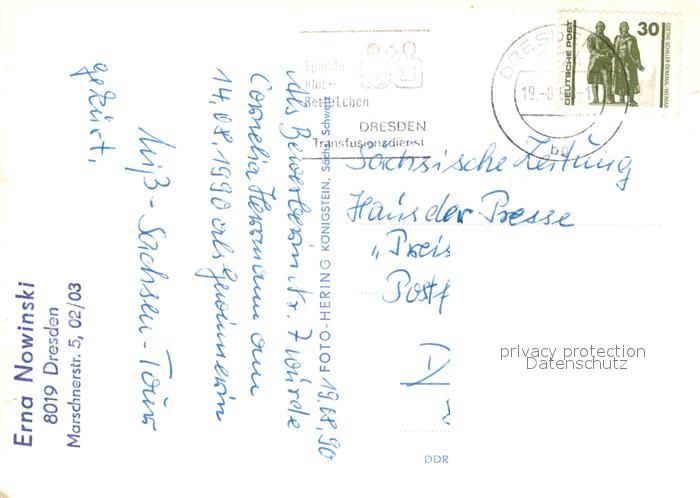 Spende
Blut -
Rette Leben
DRESDEN
Transfusionsdienst
DRESDEN
19.-8.
bg
DEUTSCHE POST
30
GOETHE-SCHILLER-DENKMAL, WEIMAR
Sächsische Zeitung
Haus der Presse
„Preis
Postf
D
privacy protection
Datenschutz
DDR
FOTO-HERING KÖNIGSTEIN, Sächs. Schweiz
19.08.90
Als Bewerberin Nr. 7 würde
Cornelia Herrmann am
14.08.1990 als Gewinnerin
Miß-Sachsen-Tour
gekürt.
Erna Nowinski
8019 Dresden
Marschnerstr. 5, 02/03